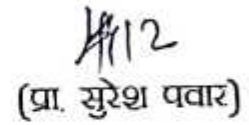 (प्रा. सुरेश पवार)